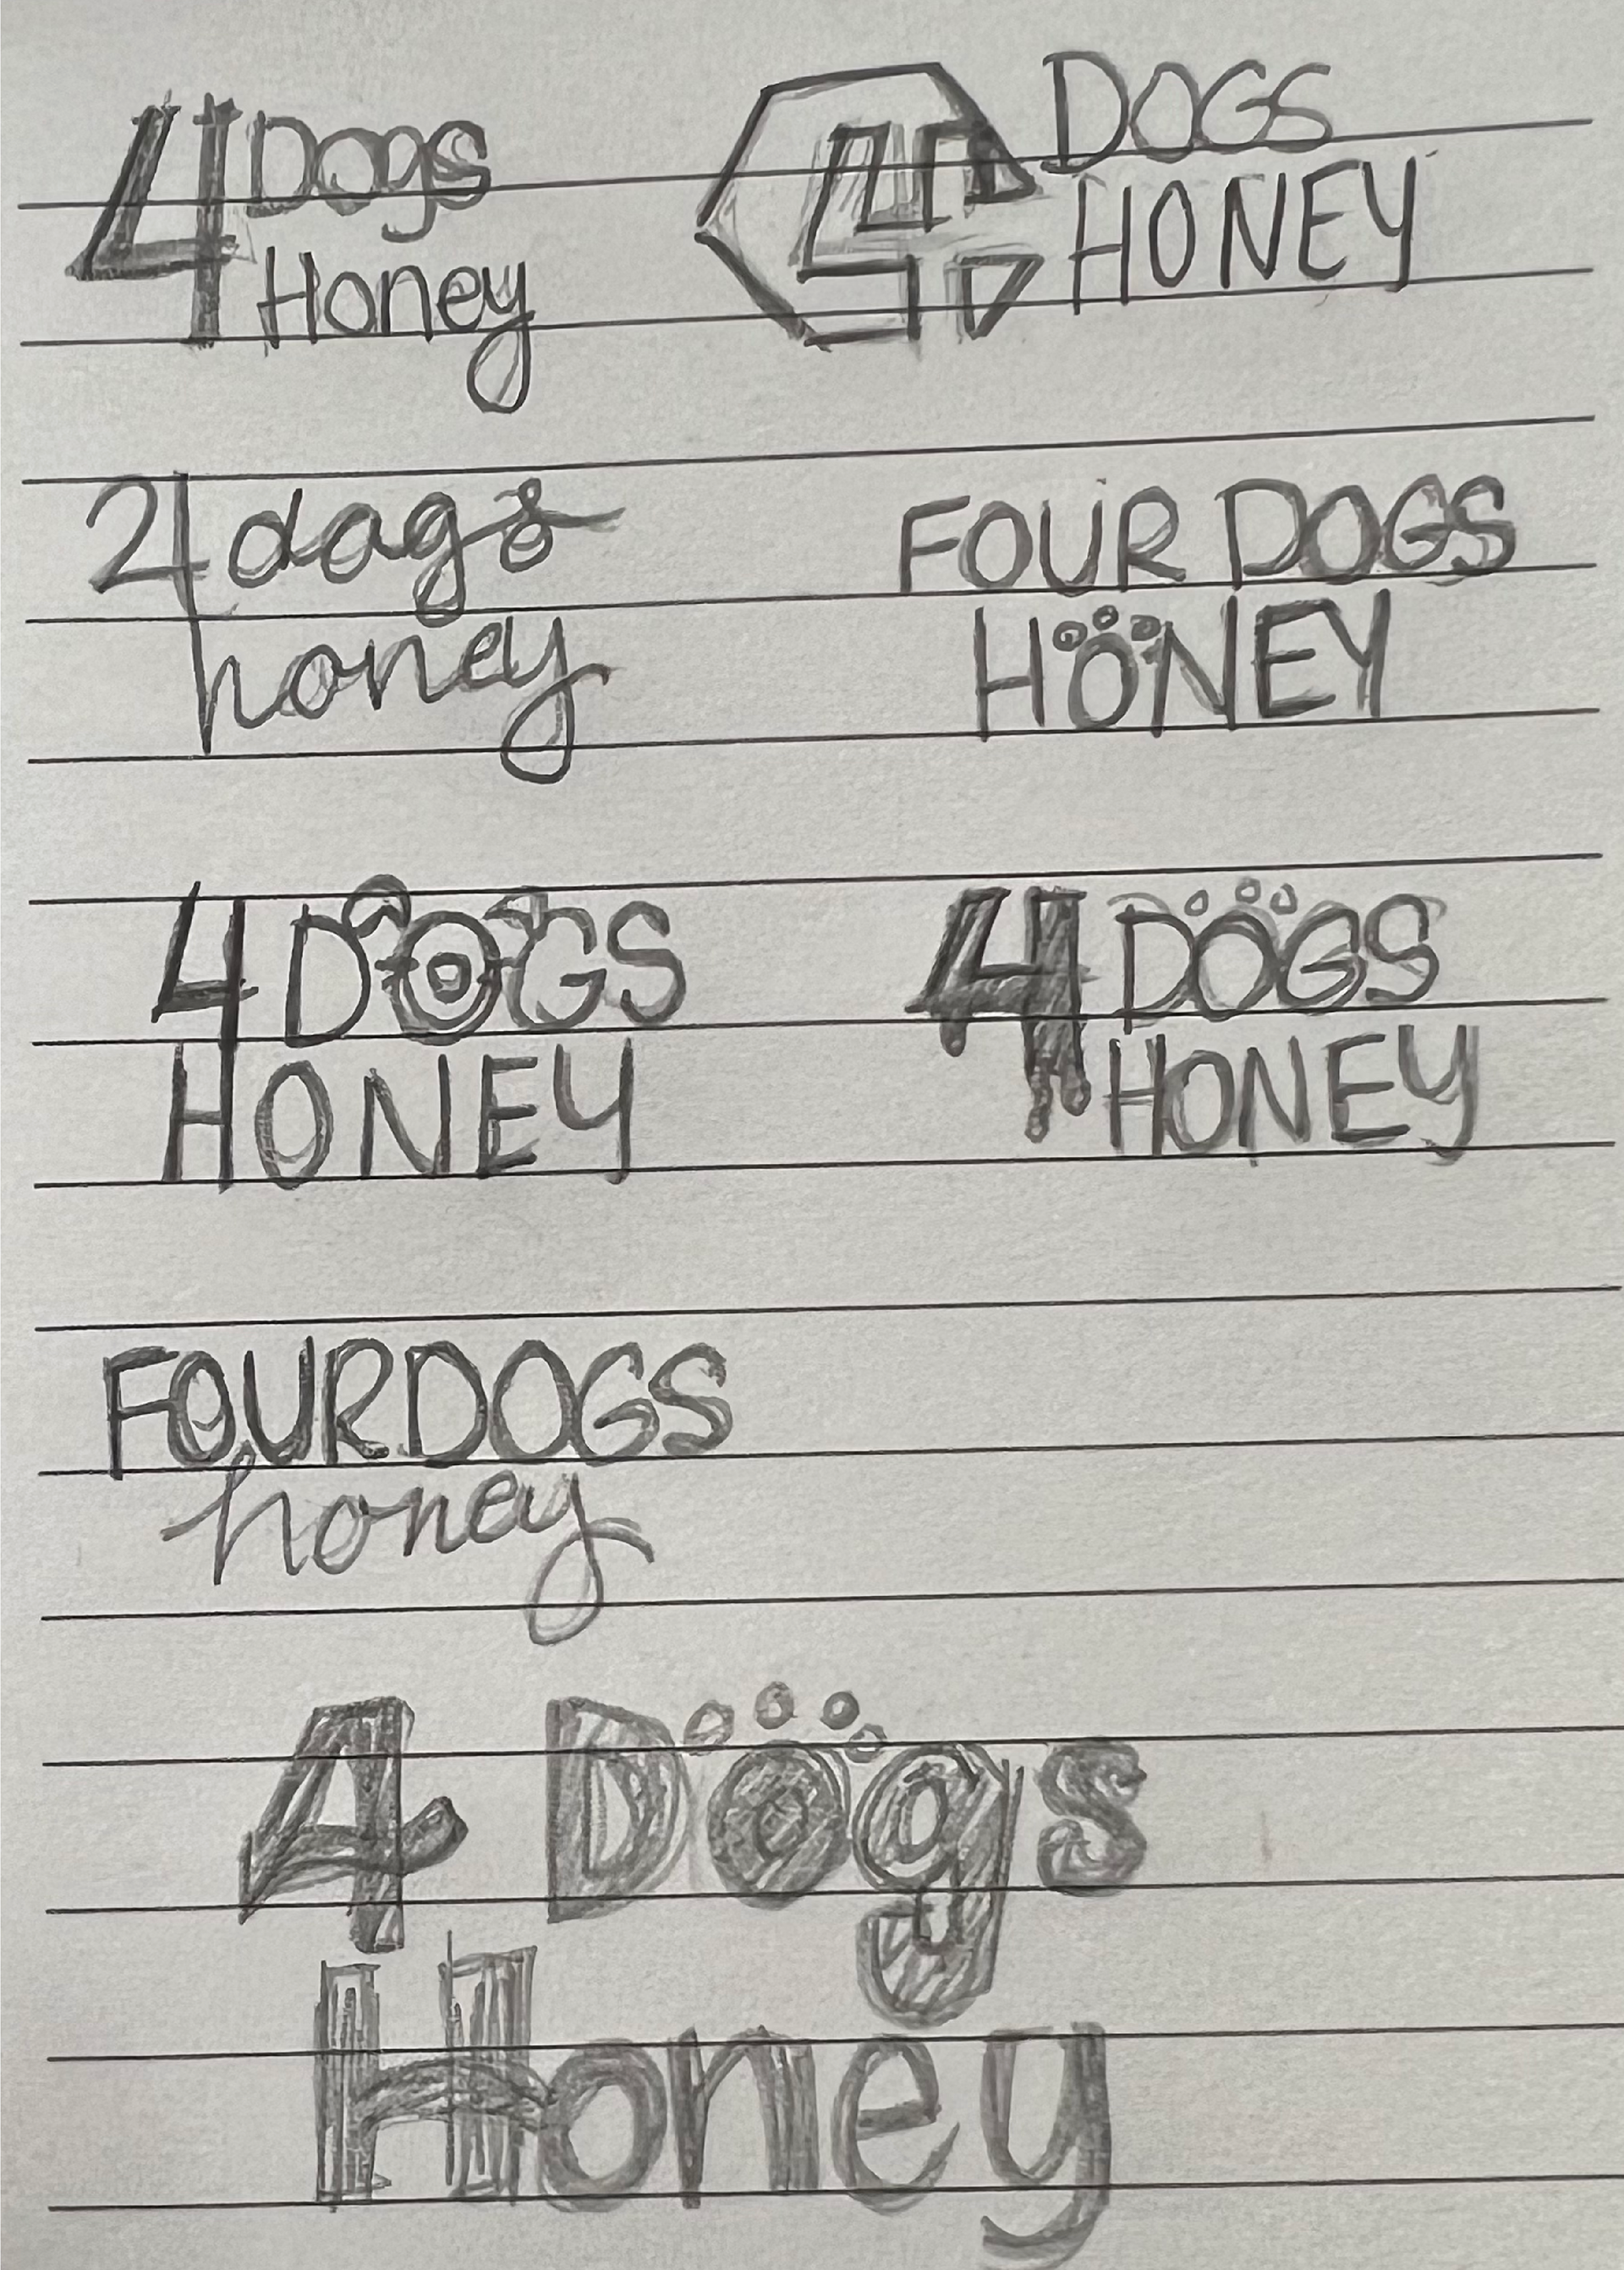 4 Dogs
Honey
4 DOGS
HONEY
4 dogs
honey
FOUR DOGS
HONEY
4 DOGS
HONEY
4 DOGS
HONEY
FOUR DOGS
honey
4 Dogs
Honey